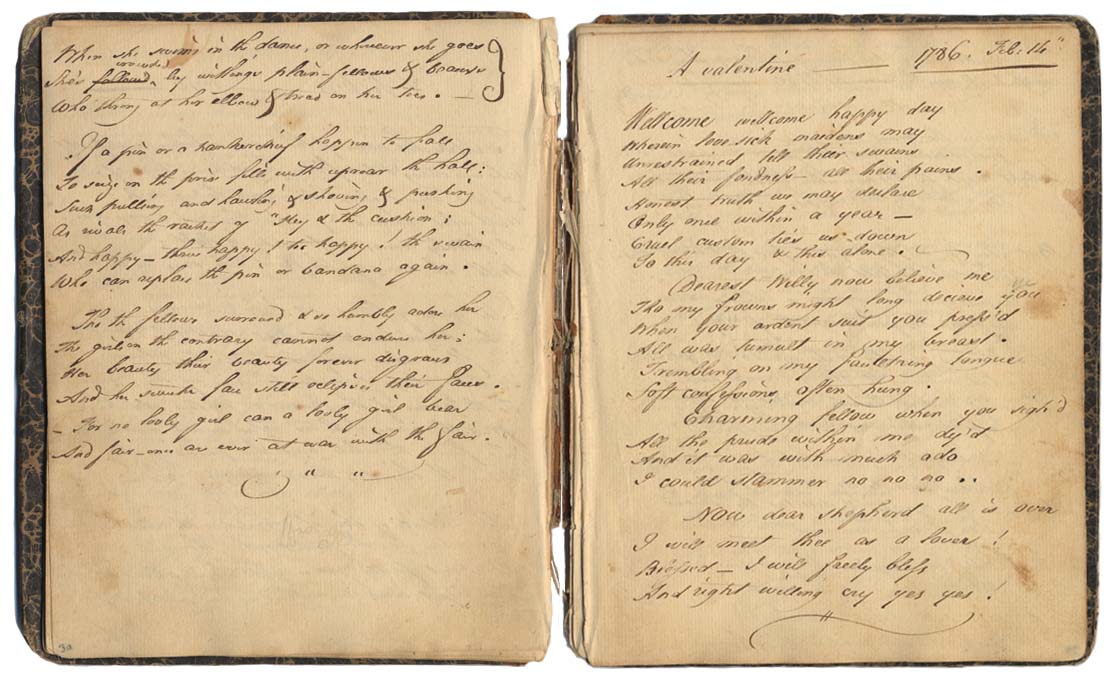 When she swims in the dance, or wherever she goes
crowded
She's follow'd by witlings plain-fellows & beaux
Who throng at her elbow & tread on her toes. —
If a pin or a hankerchief happen to fall
To seize on the prize fills with uproar the hall:
Such pulling and hawling & shoving & pushing
As rivals the racket of "Key & the cushion;
And happy — thrice happy! too happy! the swain
Who can replace the pin or bandana again.
Tho the fellows surround & so humbly adore her
The girls on the contrary cannot endure her;
Her beauty their beauty forever disgraces
And her sweeter face still eclipses their faces.
— For no lovly girl can a lovly girl bear
And fair-ones are ever at war with the fair.
30
A valentine — 1786. Feb: 14"
Wellcome wellcome happy day
Wherein love sick maidens may
Unrestrained tell their swains
All their fondness — all their pains.
Honest truth we may declare
Only once within a year —
Cruel custom ties us down
To this day & this alone.
Dearest Willy now believe me
Tho my frowns might long decieve you
When your ardent suit you press'd
All was tumult in my breast.
Trembling on my faultering tongue
Soft confessions often hung.
Charming fellow when you sigh'd
All the prude within me dy'd
And it was with much ado
I could stammer no no no..
Now dear shepherd all is over
I will meet thee as a lover!
Blessed — I will freely bless
And right willing cry yes yes!